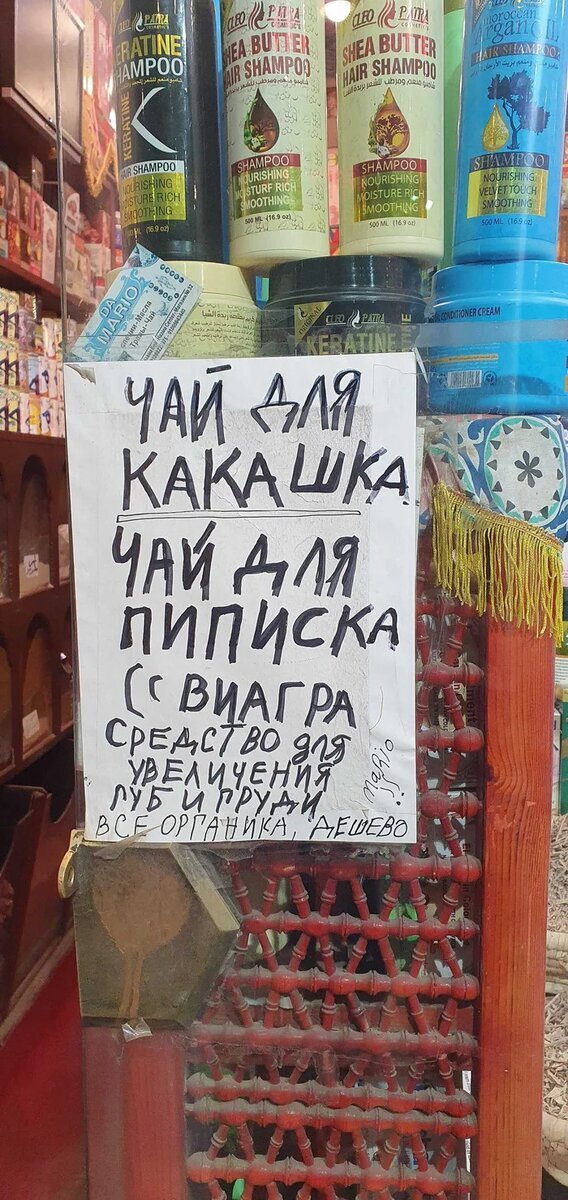 CLEO PATRA
COSMETICS
KERATINE
SHAMPOO
KERATINE
HAIR SHAMPOO
NOURISHING
MOISTURE RICH
SMOOTHING
500 ML (16.9 oz)
CLEO PATRA
COSMETICS
SHEA BUTTER
HAIR SHAMPOO
SHAMPOO
NOURISHING
MOISTURE RICH
SMOOTHING
500 ML (16.9 oz)
CLEO PATRA
COSMETICS
SHEA BUTTER
HAIR SHAMPOO
SHAMPOO
NOURISHING
MOISTURE RICH
SMOOTHING
500 ML (16.9 oz)
moroccan
argan OIL
HAIR SHAMPOO
SHAMPOO
NOURISHING
VELVET TOUCH
SMOOTHING
500 ML (16.9 oz)
DA
MARIO
CLEO PATRA
KERATINE
CONDITIONER CREAM
ЧАЙ ДЛЯ
КАКАШКА
ЧАЙ ДЛЯ
ПИПИСКА
(( ВИАГРА
СРЕДСТВО для
УВЕЛИЧЕНИЯ
ГУБ И ГРУДИ
ВСЕ ОРГАНИКА, ДЕШЕВО
maRio